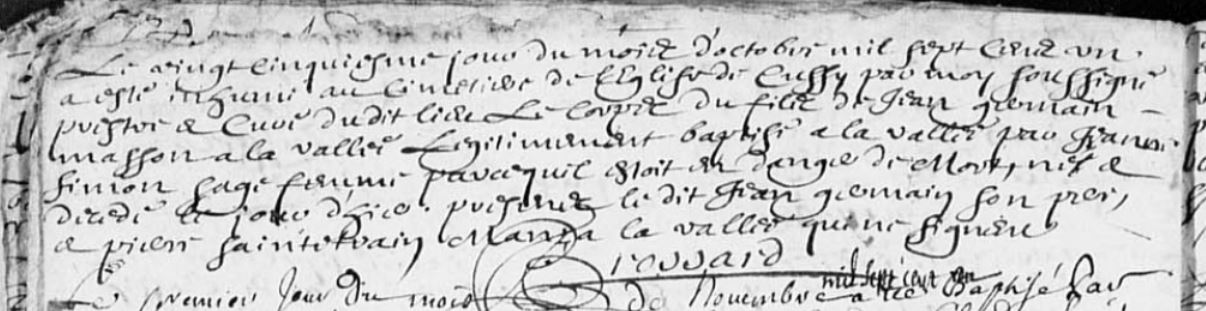 Le vingt cinquiesme jour du mois d'octobre mil sept cens un
a esté inhumé au cimetiere de l'Eglise de Cussy par moy soussigné
prestre & Curé dudit lieu Le corps du fils de Jean germain
masson a la vallée Legitimement baptisé a la vallée par
simon sage femme parcequil estoit en danger de Mort, né &
decedé le jour d'hier. presents le dit Jean germain son pere,
& pierre a la vallée qui ne signent
Le premier Jour Du mois De Novembre mil sept cent un a été Baptisé par